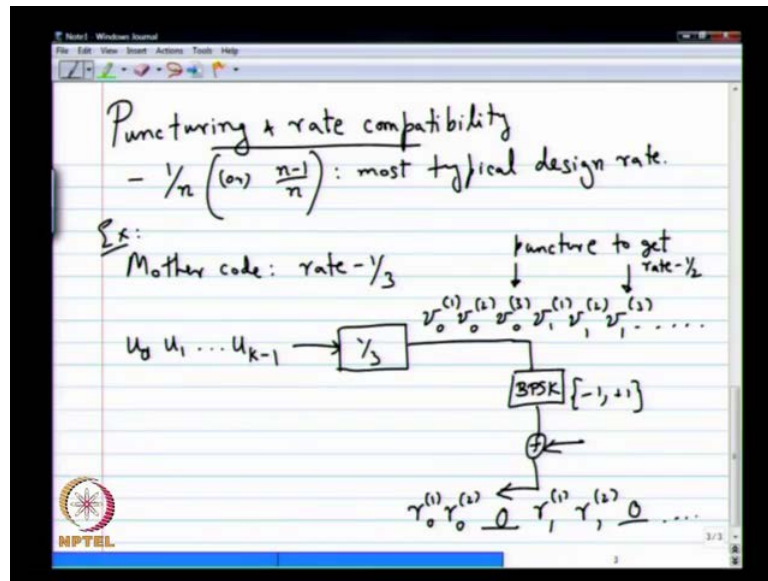 Note1 - Windows Journal
File Edit View Insert Actions Tools Help
Puncturing & rate compatibility
- 1/n ((or) n-1/n) : most typical design rate.
Ex:
Mother code: rate - 1/3
puncture to get
rate - 1/2
v₀⁽¹⁾ v₀⁽²⁾ v₀⁽³⁾ v₁⁽¹⁾ v₁⁽²⁾ v₁⁽³⁾ .....
u₀ u₁ ... u_{k-1} → 1/3
BPSK {-1, +1}
+
r₀⁽¹⁾ r₀⁽²⁾ 0 r₁⁽¹⁾ r₁⁽²⁾ 0 ....
NPTEL
3/3
3